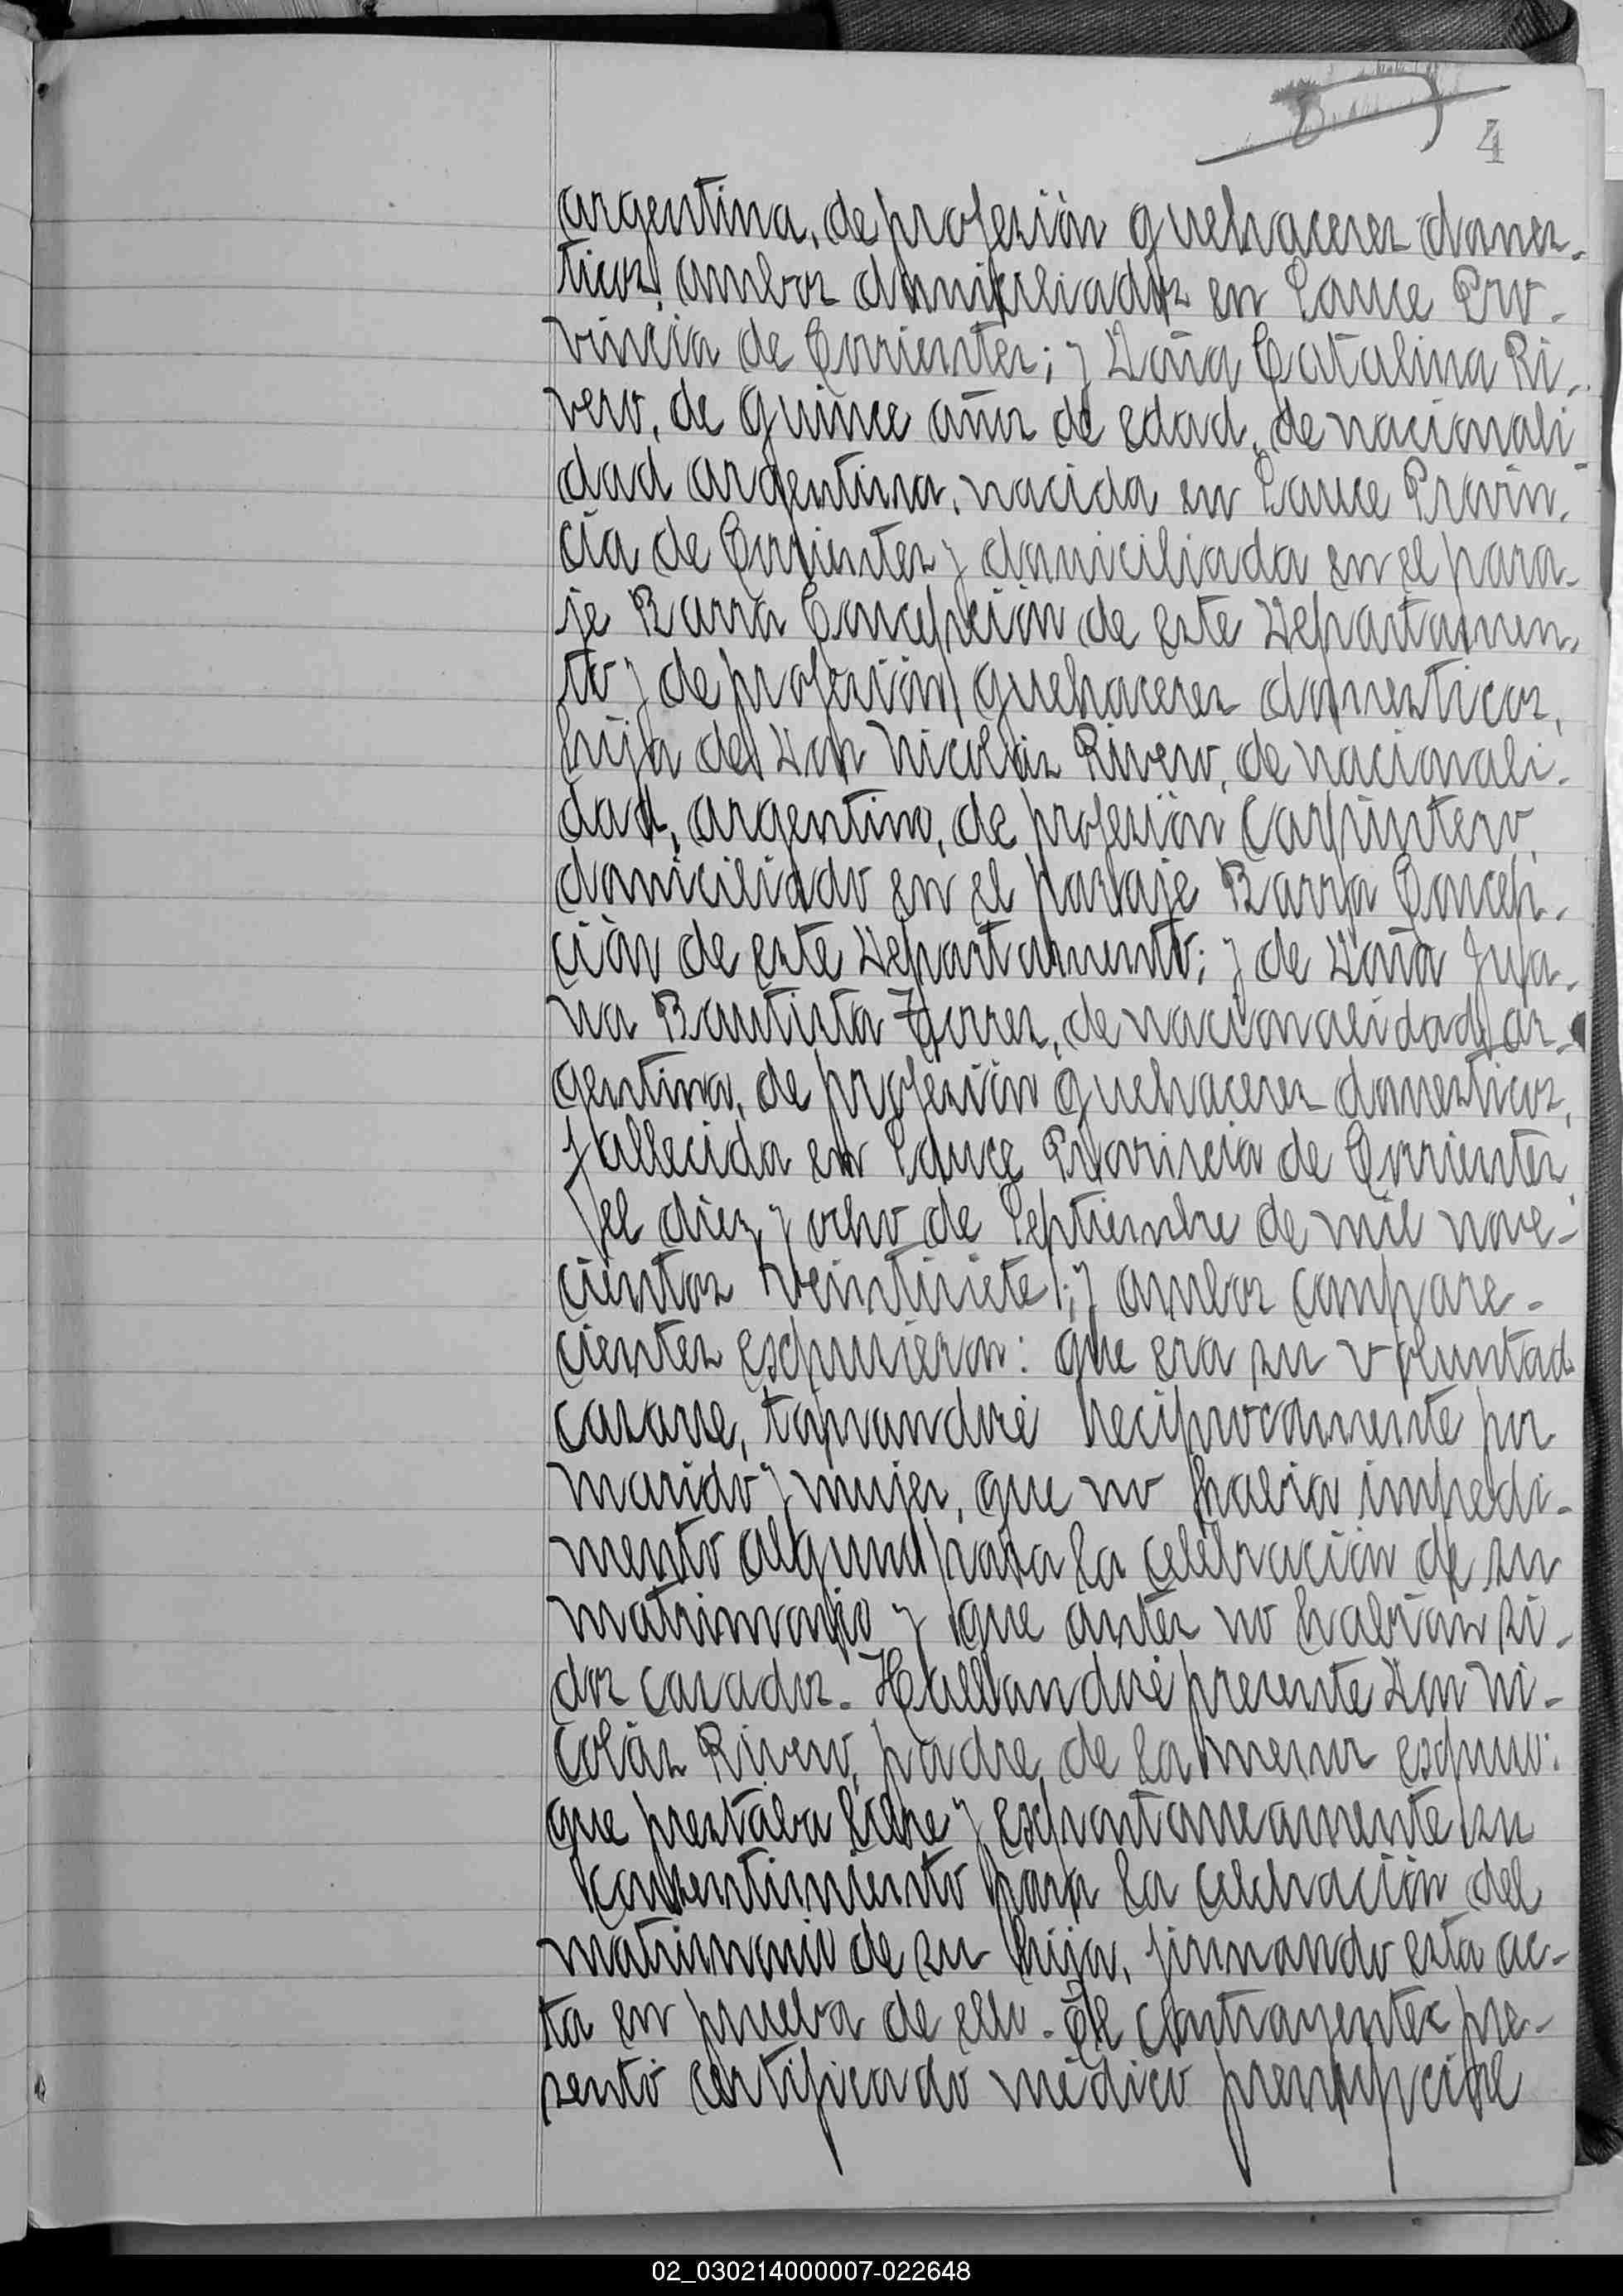 4
argentina, de profesión quehaceres domes-
ticos, ambos domiciliados en Sauce Pro-
vincia de Corrientes; y Doña Catalina Ri-
vero, de quince años de edad, de nacionali-
dad argentina, nacida en Sauce Provin-
cia de Corrientes y domiciliada en el para-
je Barra Concepción de este Departamen-
to y de profesión quehaceres domesticos,
hija de Don Nicolás Rivero, de nacionali-
dad, argentino, de profesión Carpintero,
domiciliado en el paraje Barra Concep-
ción de este Departamento; y de Doña Jua-
na Bautista Torres, de nacionalidad ar-
gentina, de profesión quehaceres domesticos,
fallecida en Sauce Provincia de Corrientes
el diez y ocho de Septiembre de mil nove-
cientos veintisiete; y ambos compare-
cientes expusieron: que era su voluntad
casarse, tomandosé reciprocamente por
marido y mujer, que no habia impedi-
mento alguno para la celebración de su
matrimonio y que antes no habian si-
dos casados. Hallandosé presente Don Ni-
colás Rivero, padre de la menor expuso:
que prestaba libre y espontaneamente su
consentimiento para la celebración del
matrimonio de su hija, firmando esta ac-
ta en prueba de ello. El contrayentes pre-
sentó certificado médico prenupcial
02_030214000007-022648